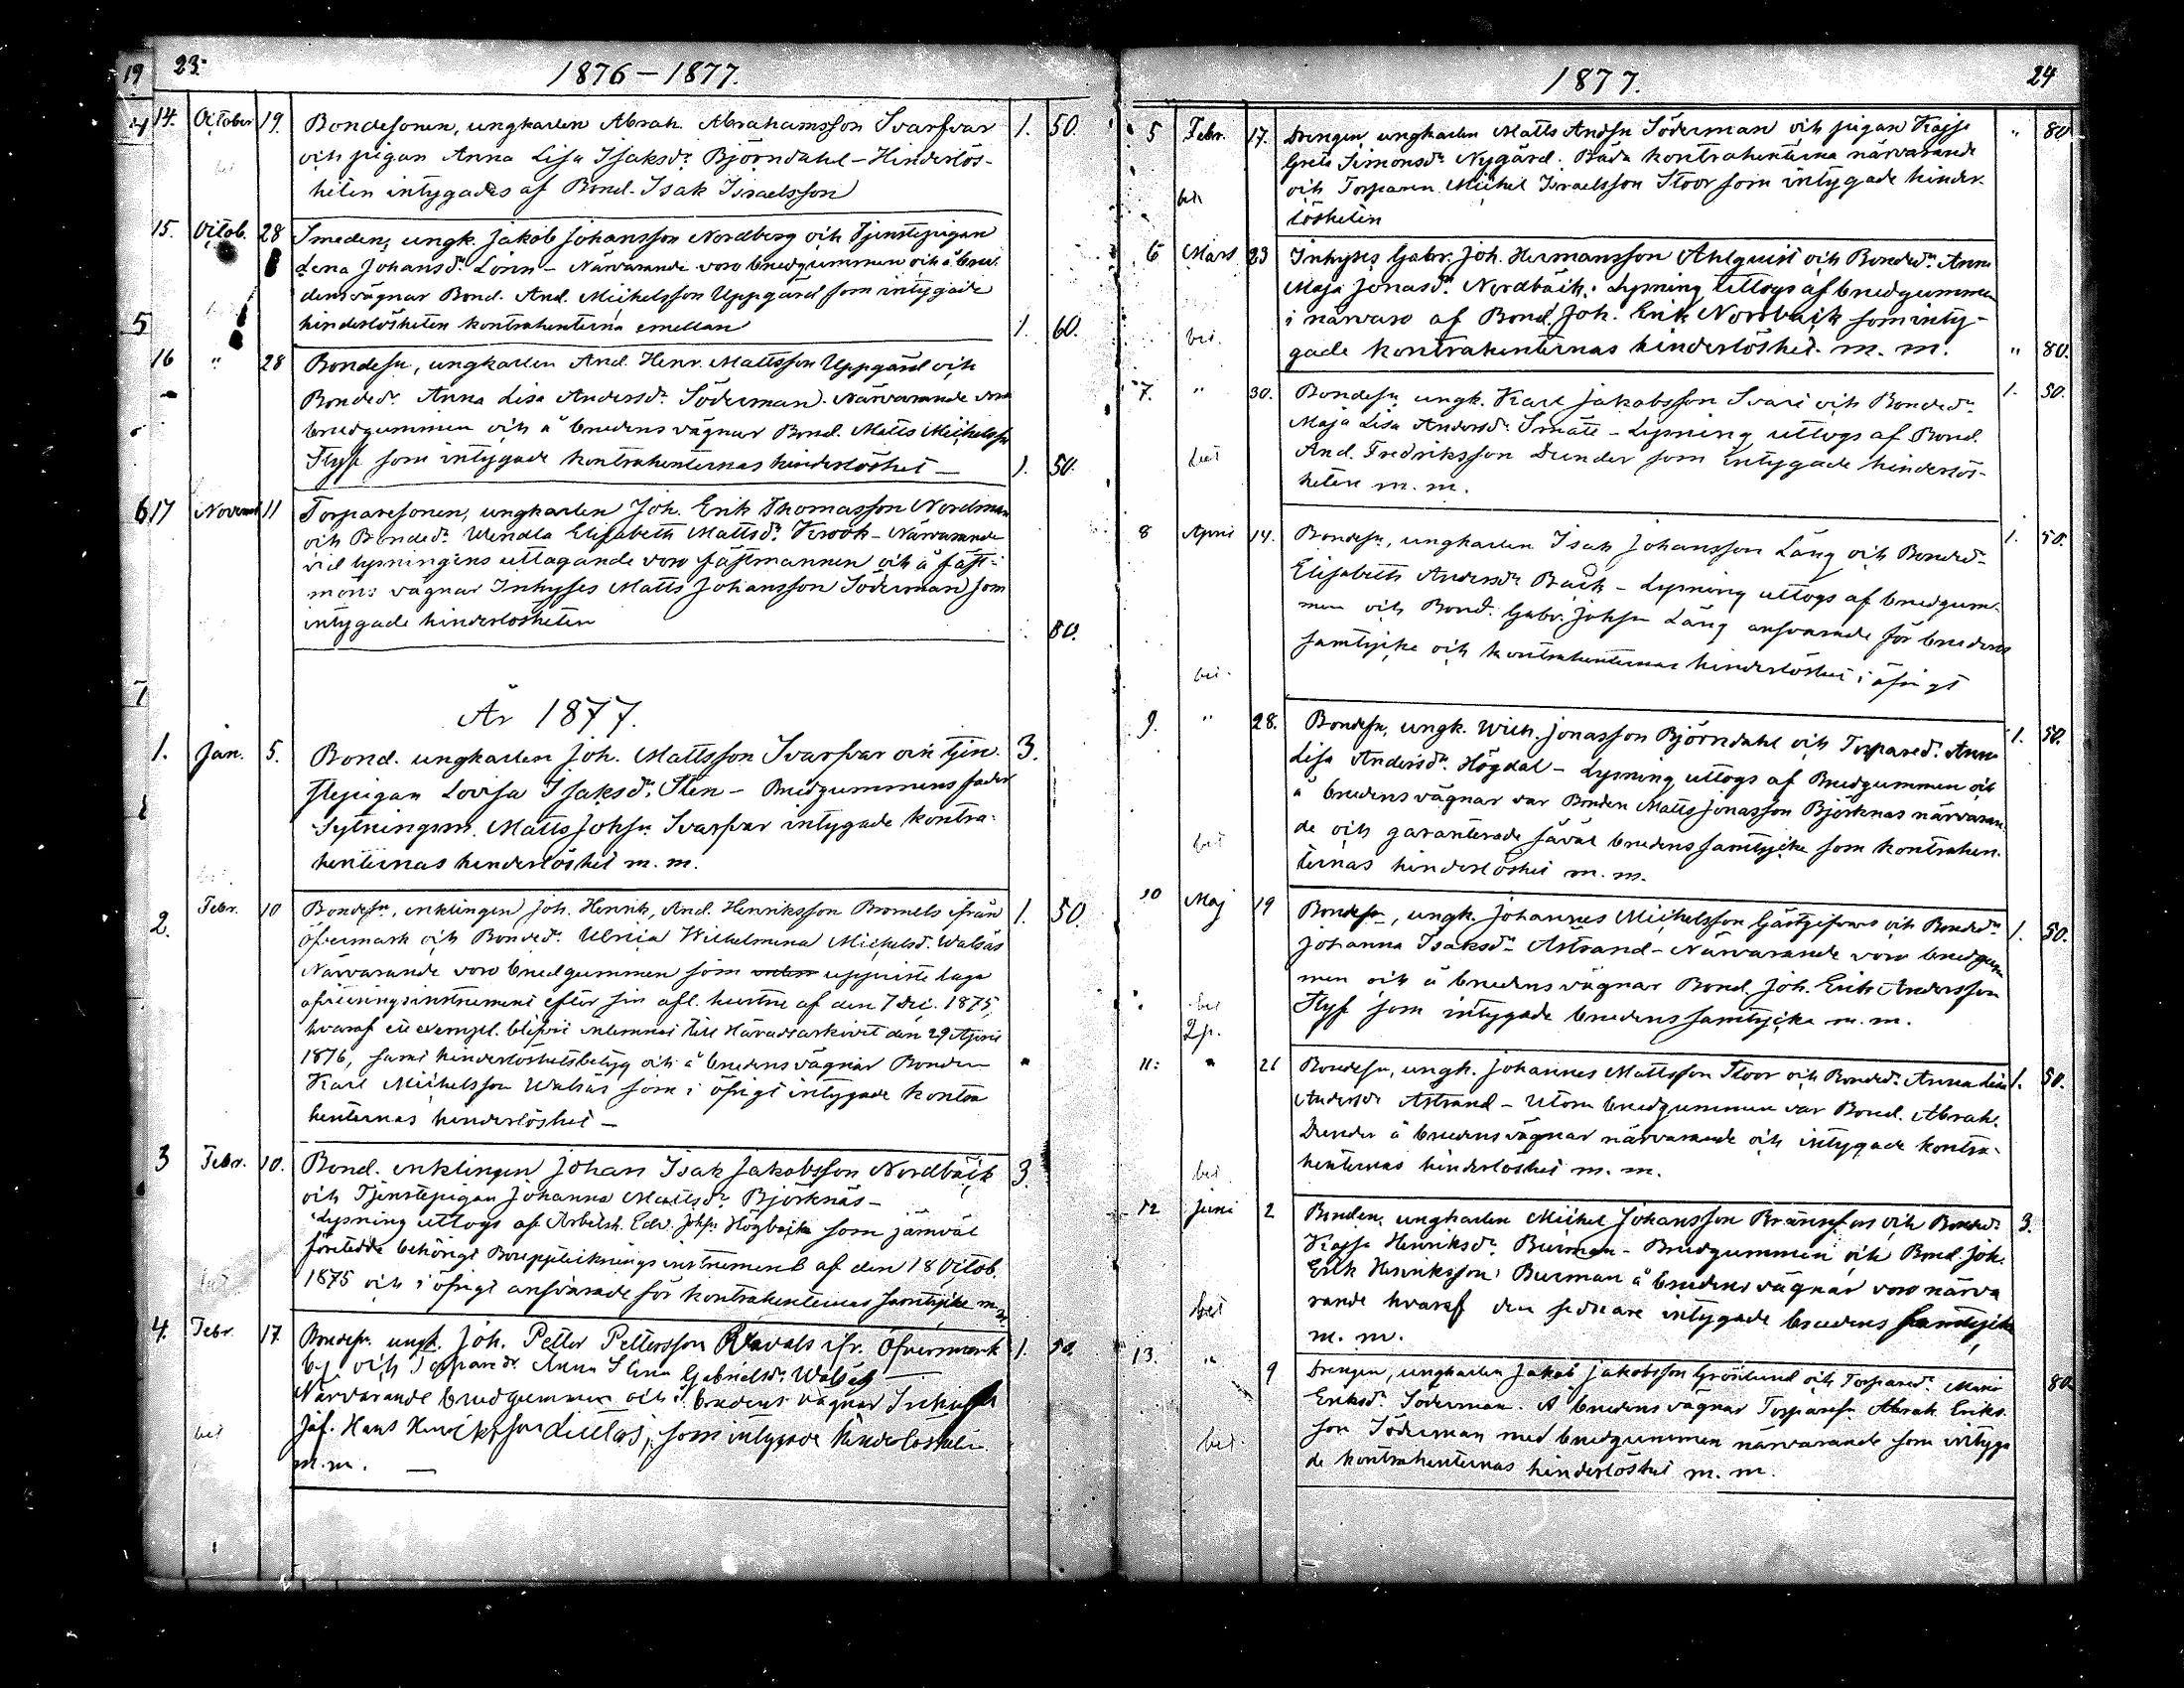 19 23. 1876–1877.
14. October 19. Bondesonen, ungkarlen Abrah. Abrahamsson Svarfvar 1. 50.
och pigan Anna Lisa Isaksdr Björndahl – Hinderlös-
heten intygades af Bond. Isak Israelsson
15. Octob. 28 Smeden, ungk. Jakob Johansson Nordberg och Tjenstepigan
Lena Johansdr Lönn – Närvarande voro brudgummen och å bru-
dens vägnar Bond. And. Michelsson Uppgård som intygade
5 hinderlösheten kontrahenterna emellan 1. 60.
16 " 28 Bondesn, ungkarlen And. Henr. Mattsson Uppgård och
Bondedr Anna Lisa Andersdr Söderman. Närvarande voro
brudgummen och å brudens vägnar Bond. Matts Michelsson
som intygade kontrahenternas hinderlöshet – 1. 50.
6 17 Novemb 11 Torparesonen, ungkarlen Joh. Erik Thomasson Nordman
och Bondedr Wendla Elisabeth Mattsdr Krook – Närvarande
vid lysningens uttagande voro fästmannen och å fäst-
möns vägnar Inhyses Matts Johansson Söderman som
intygade hinderlösheten 80.
7
År 1877.
1. Jan. 5. Bond. ungkarlen Joh. Mattsson Svarfvar och tjen- 3.
stepigan Lovisa Isaksdr Sten – Brudgummens fader
Sytningsm. Matts Johsn Svarfvar intygade kontra-
henternas hinderlöshet m. m.
2. Febr. 10 Bondesn, enklingen Joh. Henrik, And. Henriksson Bromels ifrån 1. 50.
Öfvermark och Bondedr Ulrica Wilhelmina Michelsdr Walsäs
Närvarande voro brudgummen som uppviste laga
afvittringsinstrument efter sin afl. hustru af den 7 Dec. 1875,
hvaraf ett exempl. blifvit inlemnat till Häradsarkivet den 29 April
1876, samt hinderlöshetsbetyg och å brudens vägnar Bonden
Karl Michelsson Walsäs som i öfrigt intygade kontra
henternas hinderlöshet –
3 Febr. 10. Bond. enklingen Johan Isak Jakobsson Nordbäck 3.
och Tjenstepigan Johanna Mattsdr Björknäs –
Lysning uttogs af Arbetsk. Edv. Johsn Högback som jämväl
företedde behörigt Bouppteckningsinstrument af den 18 Octob.
1875 och i öfrigt ansvarade för kontrahenternas samtycke m. m.
4. Febr. 17. Bondesn. ungk. Joh. Petter Pettersson Ravals ifr. Öfvermark 1. 50.
by och Torparedr Anna Stina Gabrielsdr Walsäs
Närvarande brudgummen och å brudens vägnar
bet Hans Henriksson som intygade hinderlösheten
m. m. –
1877. 24
5 Febr. 17. Drengen, ungkarlen Matts Andsn Söderman och pigan Kajsa " 80.
Greta Simonsdr Nygård. Båda kontrahenterna närvarande
bet och Torparen Michel Israelsson Stoor som intygade hinder-
lösheten
6 Mars 23 Inhyses Gabr. Joh. Hermansson Ahlquist och Bondedr Anna
Maja Jonasdr Nordbäck. Lysning uttogs af brudgummen
i närvaro af Bond. Joh. Erik Nordbäck som inty-
bet. gade kontrahenternas hinderlöshet m. m. " 80.
7. " 30. Bondesn ungk. Karl Jakobsson Svars och Bondedr 1. 50.
Maja Lisa Andersdr Smätt – Lysning uttogs af Bond.
bet And. Fredriksson Dunder som intygade hinderlös-
heten m. m.
8 April 14. Bondesn, ungkarlen Isak Johansson Lång och Bondedr 1. 50.
Elisabeth Andersdr Bäck – Lysning uttogs af brudgum-
men och Bond. Gabr. Johsn Lång ansvarade för brudens
bet. samtycke och kontrahenternas hinderlöshet i öfrigt
9. " 28. Bondesn, ungk. Wilh. Jonasson Björndahl och Torparedr Anna 1. 50.
Lisa Andersdr Högdal – Lysning uttogs af Brudgummen och
å brudens vägnar var Bonden Matts Jonasson Björknäs närvaran-
bet de och garanterade såväl brudens samtycke som kontrahen-
ternas hinderlöshet m. m.
10 Maj 19 Bondesn, ungk. Johannes Michelsson Gästgifvars och Bondedr 1. 50.
Johanna Isaksdr Åstrand – Närvarande voro brudgum
men och å brudens vägnar Bond. Joh. Erik Andersson
bet 2 p. som intygade brudens samtycke m. m.
11. " 26 Bondesn, ungk. Johannes Mattsson Stoor och Bondedr Anna Lisa 1. 50.
Andersdr Åstrand – Utom brudgummen var Bond. Abrah.
Dunder å brudens vägnar närvarande och intygade kontra-
bet henternas hinderlöshet m. m.
12 Juni 2 Bonden, ungkarlen Michel Johansson Brännfors och Bondedr 3.
Kajsa Henriksdr Burman – Brudgummen och Bond. Joh.
Erik Henriksson Burman å brudens vägnar voro närva
bet rande hvaraf den sednare intygade brudens samtycke
m. m.
13. " 9 Drengen, ungkarlen Jakob Jakobsson Grönlund och Torparedr Maria 80
Eriksdr Söderman. Å brudens vägnar Torparesn Abrah. Eriks-
bet. son Söderman med brudgummen närvarande som intyga
de kontrahenternas hinderlöshet m. m.